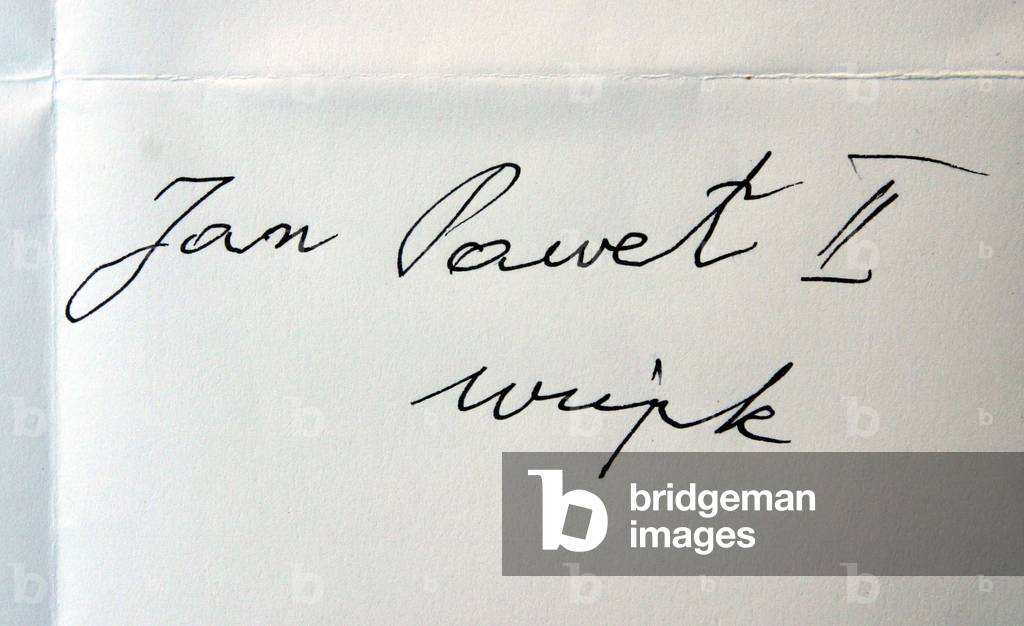 Jan Paweł II
wujek
bridgeman
images